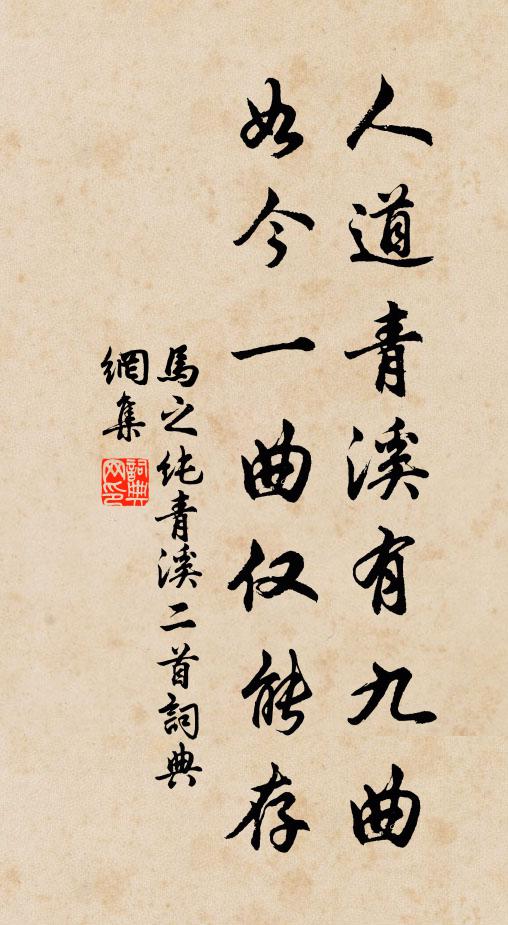 人道青溪有九曲
如今一曲仅能存
馬之纯青溪二首詞典
網集
詞典網印